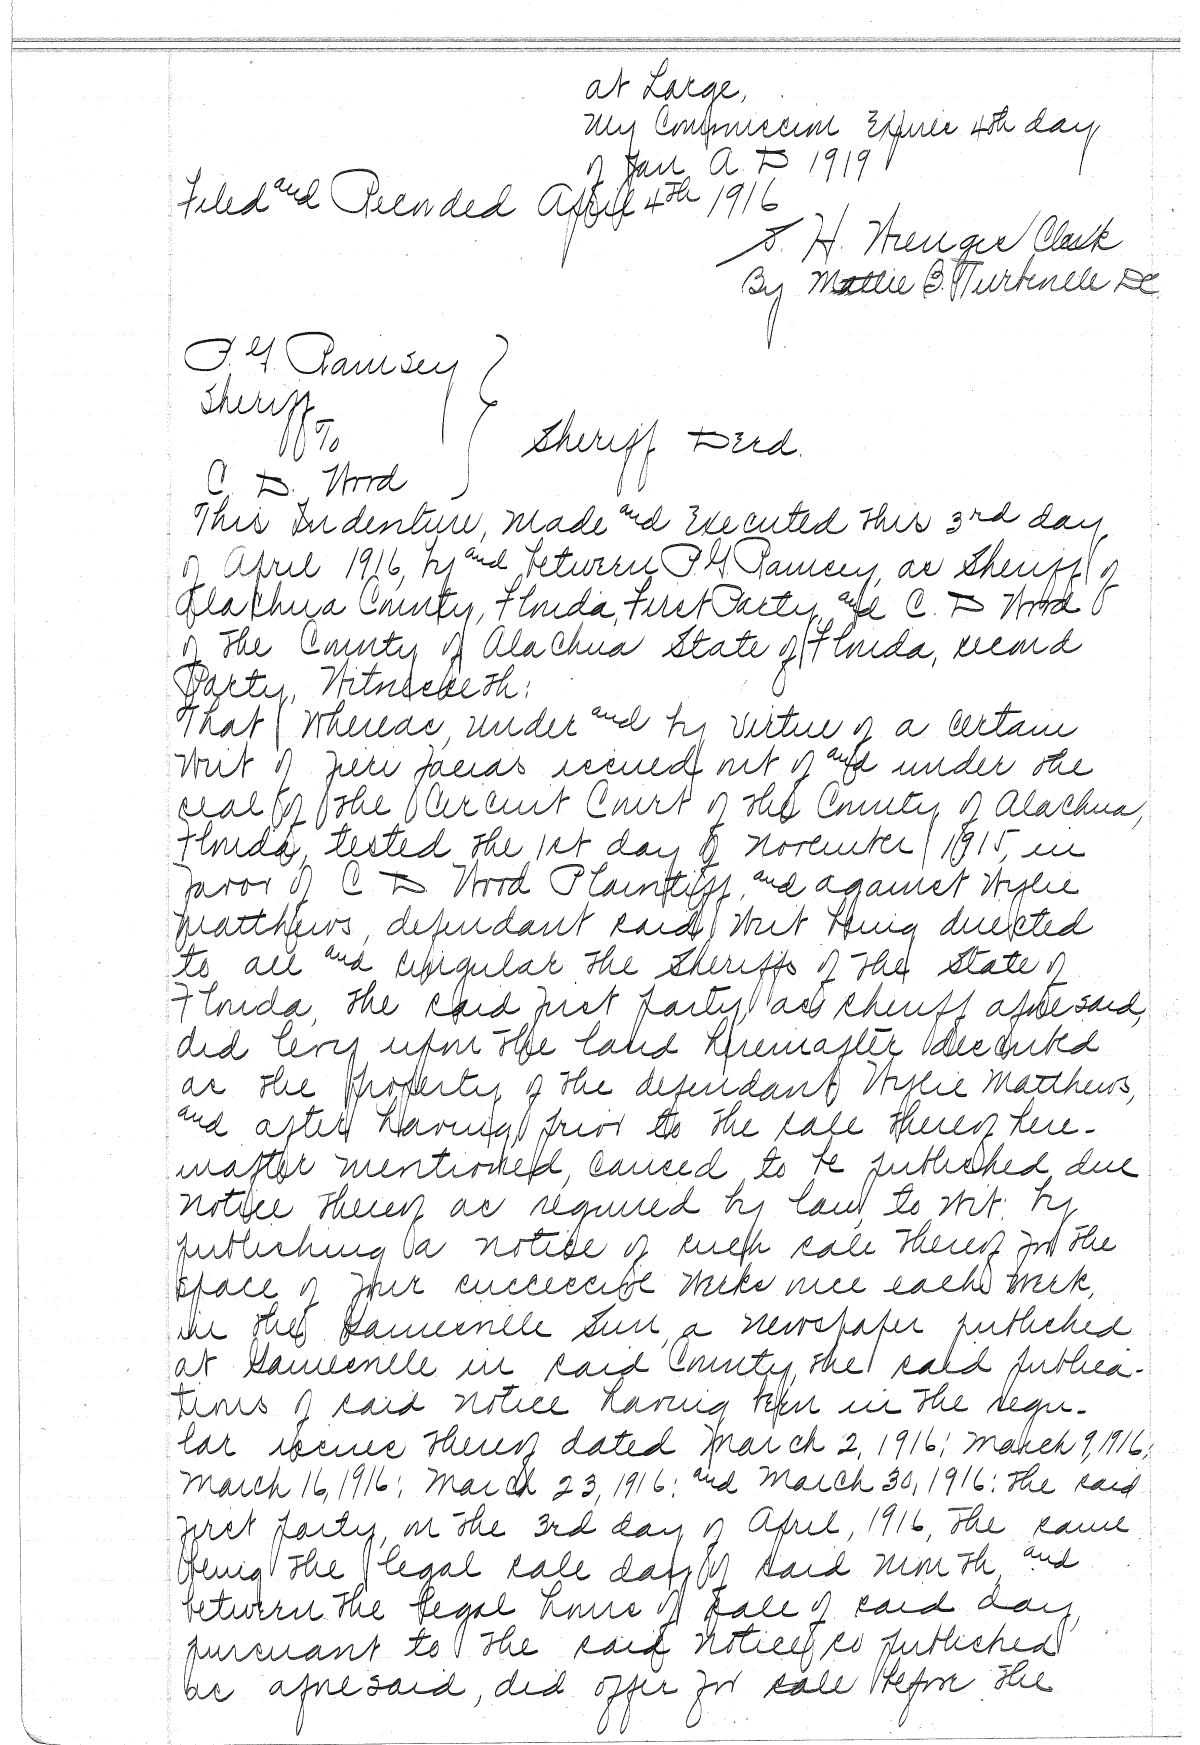 at Large,
My Commission Expires 4th day
of Jan A. D 1919
Filed and Recorded April 4th 1916
S. H. Wienges Clerk
By Mattie B. Turbeville DC
P. G. Ramsey
Sheriff
To
Sheriff Deed.
C. D. Wood
This Indenture, Made and Executed this 3rd day
of April 1916, by and between P. G. Ramsey, as Sheriff of
Alachua County, Florida, First Party, and C. D Wood
of the County of Alachua State of Florida, second
Party, Witnesseth:
That Whereas, under and by virtue of a certain
Writ of Fieri Facias issued out of and under the
seal of the Circuit Court of the County of Alachua,
Florida, tested the 1st day of November 1915, in
favor of C D Wood Plaintiff, and against Wylie
Matthews, defendant said Writ being directed
to all and singular the Sheriffs of the State of
Florida, the said first party as sheriff aforesaid,
did levy upon the land hereinafter described
as the property of the defendant Wylie Matthews,
and after having prior to the sale thereof here-
inafter mentioned, caused to be published due
notice thereof as required by law, to wit: by
publishing a notice of such sale thereof for the
space of four successive weeks once each week,
in the Gainesville Sun, a newspaper published
at Gainesville in said County, the said publica-
tions of said notice having been in the regu-
lar issues thereof dated March 2, 1916; March 9, 1916;
March 16, 1916; March 23, 1916; and March 30, 1916: the said
first party, on the 3rd day of April, 1916, the same
being the legal sale day of said month, and
between the legal hours of sale of said day,
pursuant to the said notice so published
as aforesaid, did offer for sale before the